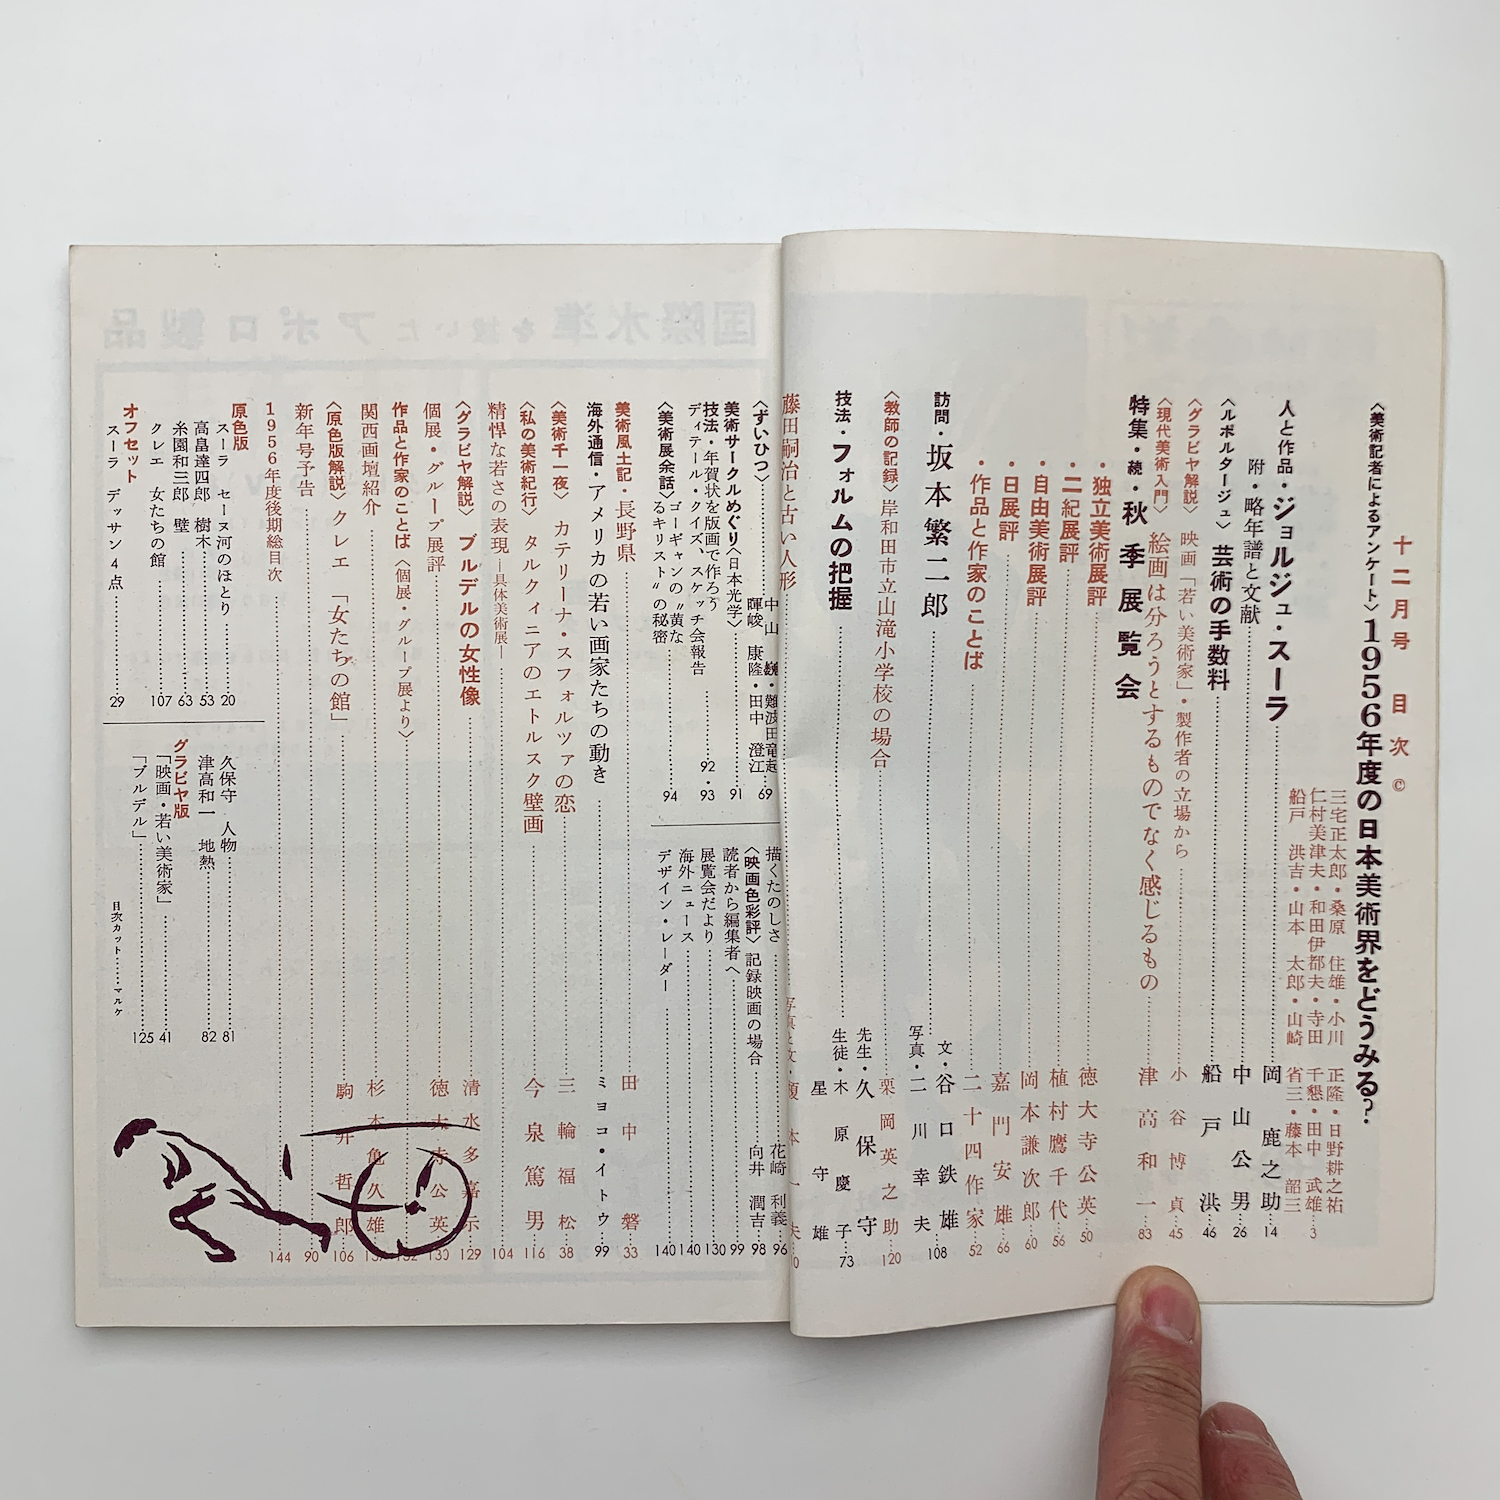 十二月号 目次 ©
〈美術記者によるアンケート〉1956年度の日本美術界をどうみる?
三宅正太郎・桑原 住雄・小川 正隆・日野耕之祐
仁村美津夫・和田伊都夫・寺田 千懇・田中 武雄…3
船戸 洪吉・山本 太郎・山崎 省三・藤本 韶三
人と作品・ジョルジュ・スーラ……岡 鹿之助…14
附・略年譜と文献……中山公男…26
〈ルポルタージュ〉芸術の手数料……船戸 洪…46
〈グラビヤ解説〉映画「若い美術家」・製作者の立場から……小谷博貞…45
〈現代美術入門〉絵画は分ろうとするものでなく感じるもの……津高和一…83
特集・続・秋季展覧会
・独立美術展評……徳大寺公英…50
・二紀展評……植村鷹千代…56
・自由美術展評……岡本謙次郎…60
・日展評……嘉門安雄…66
・作品と作家のことば……二十四作家…52
訪問・坂本繁二郎……文・谷口鉄雄 写真・二川幸夫…108
〈教師の記録〉岸和田市立山滝小学校の場合……栗岡英之助…120
技法・フォルムの把握……先生・久保 守 生徒・木原慶子 星 守雄…73
藤田嗣治と古い人形……
〈ずいひつ〉……中山 巍・難波田竜起 暉峻 康隆・田中 澄江…69
美術サークルめぐり〈日本光学〉……91
技法・年賀状を版画で作ろう……92・93
ディテール・クイズ、スケッチ会報告
〈美術展余話〉ゴーギャンの〝黄なるキリスト〟の秘密……94
描くたのしさ……花崎 利義…96
〈映画色彩評〉記録映画の場合……向井 潤吉…98
読者から編集者へ……99
展覧会だより……130
海外ニュース……140
デザイン・レーダー……140
美術風土記・長野県……田中 磐…33
海外通信・アメリカの若い画家たちの動き……ミヨコ・イトウ…99
〈美術千一夜〉カテリーナ・スフォルツァの恋……三輪福松…38
〈私の美術紀行〉タルクィニアのエトルスク壁画……今泉篤男…116
精悍な若さの表現―具体美術展―……104
〈グラビヤ解説〉ブルデルの女性像……清水多嘉示…129
個展・グループ展評……徳大寺公英…130
作品と作家のことば〈個展・グループ展より〉……132
関西画壇紹介……杉本亀久雄…137
〈原色版解説〉クレエ「女たちの館」……駒井哲郎…106
新年号予告……90
1956年度後期総目次……144
原色版
スーラ セーヌ河のほとり……20
高畠達四郎 樹木……53
糸園和三郎 壁……63
クレエ 女たちの館……107
オフセット
スーラ デッサン4点……29
久保守 人物……81
津高和一 地熱……82
グラビヤ版
「映画・若い美術家」……41
「ブルデル」……125
目次カット……マルケ